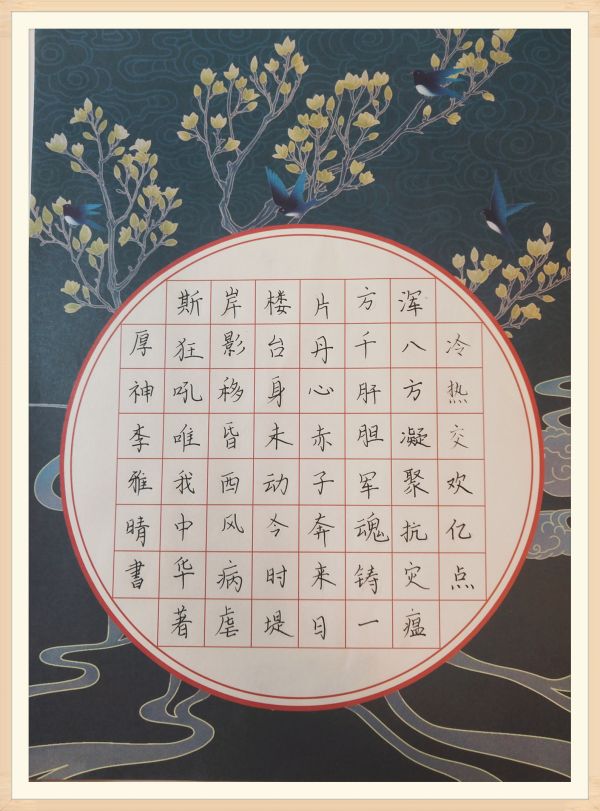 冷热交欢亿点
浑八方凝聚抗灾瘟
方千肝胆军魂铸一
片丹心赤子奔来日
楼台身未动今时堤
岸影移昏西风病虐
斯狂吼唯我中华著
厚神李雅晴書